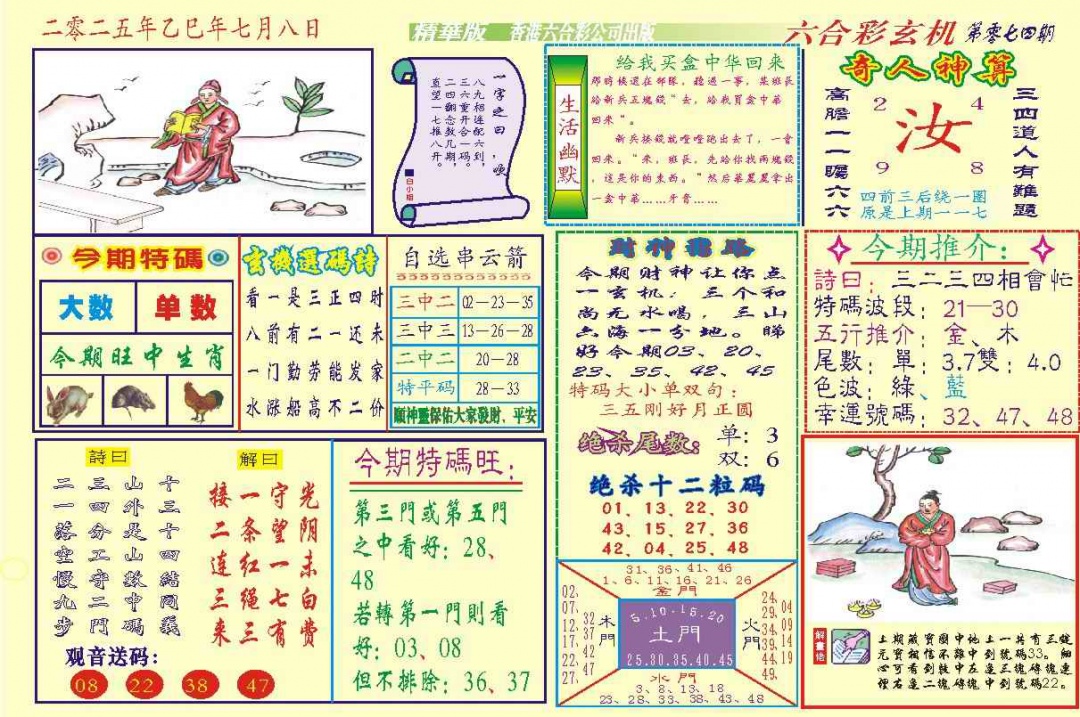 二零二五年乙巳年七月八日
精華版 香港六合彩公司出版
六合彩玄机 第零七四期
一字之曰：
八九相连配，
三六重开合六到，
二四翻念数一码，
直望一七推八几期，
白小姐
生活幽默
给我买盒中华回来
那時候還在部隊，聽過一事，某班長
給新兵五塊錢"去，給我買盒中華
回來"。
新兵接錢就噔噔跑出去了，一會
回來。"來，班長，先給你找兩塊錢
，這是你的東西。"然后華麗麗拿出
一盒中華……牙膏……
奇人神算
高膽一一曬六六
2 4
汝
9 8
三四道人有難題
四前三后绕一圈
原是上期一一七
今期特碼
大数 单数
今期旺中生肖
玄機選碼詩
看一是三正四时
八前有二一还未
一门勤劳能发家
水涨船高不二价
自选串云箭
三中二 02—23—35
三中三 13—26—28
二中二 20—28
特平码 28—33
願神靈保佑大家發財、平安
今期财神让你点
一玄机：三个和
尚无水喝，三山
六海一分地。睇
好今期03、20、
23、35、42、45
特码大小单双句：
三五刚好月正圆
绝杀尾数：
单：3
双：6
绝杀十二粒码
01、13、22、30
43、15、27、36
42、04、25、48
今期推介：
詩曰：三二三四相會忙
特碼波段：21—30
五行推介：金、木
尾數：單：3.7雙：4.0
色波：綠、藍
幸運號碼：32、47、48
詩曰
二一落空慢九步
三四分工守二門
山外是山數中碼
十三十四結同義
解曰
接二连三来
一条红绳三
守望一七有
光阴未白费
观音送码：
08 22 38 47
今期特碼旺：
第三門或第五門
之中看好：28、
48
若轉第一門則看
好：03、08
但不排除：36、37
31、36、41、46
1、6、11、16、21、26
金門
02、07、12、17、22、27
32、37、42、47
木門
5.10.15.20
土門
25.30.35.40.45
火門
24、29、34、39、44、49
04、09、14、19
水門
3、8、13、18
23、28、33、38、43、48
解畫佬
上期藏寶圖中地上一共有三錠
元寶相信不難中到號碼33。細
心可看到枝中左邊三塊磚塊連
僅右邊二塊磚塊中到號碼22。